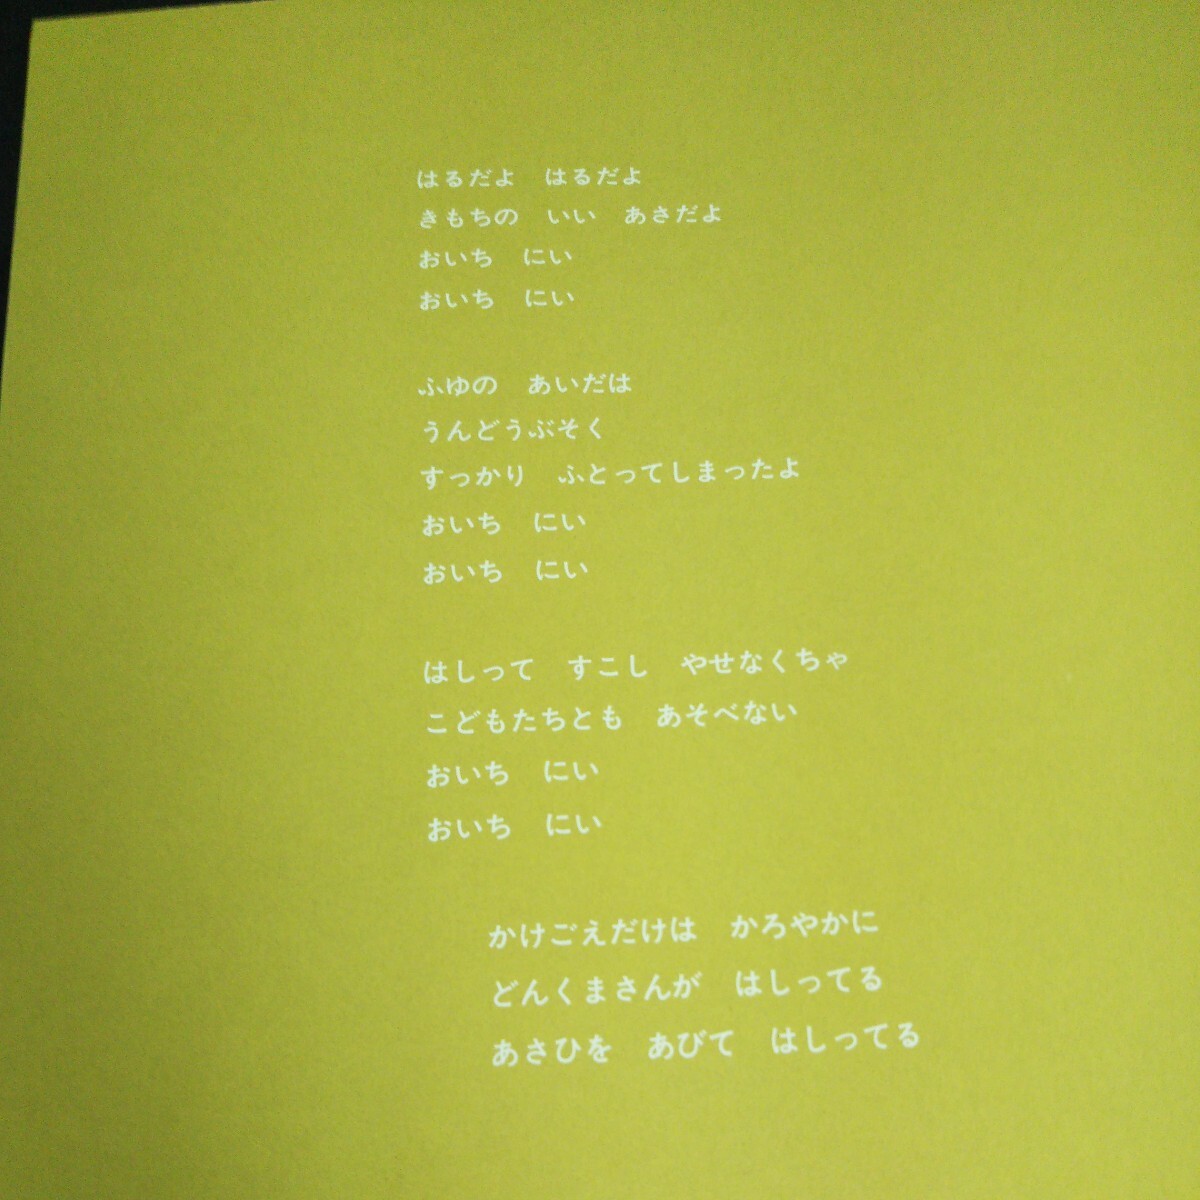 はるだよ　はるだよ
きもちの　いい　あさだよ
おいち　にい
おいち　にい
ふゆの　あいだは
うんどうぶそく
すっかり　ふとってしまったよ
おいち　にい
おいち　にい
はしって　すこし　やせなくちゃ
こどもたちとも　あそべない
おいち　にい
おいち　にい
かけごえだけは　かろやかに
どんくまさんが　はしってる
あさひを　あびて　はしってる